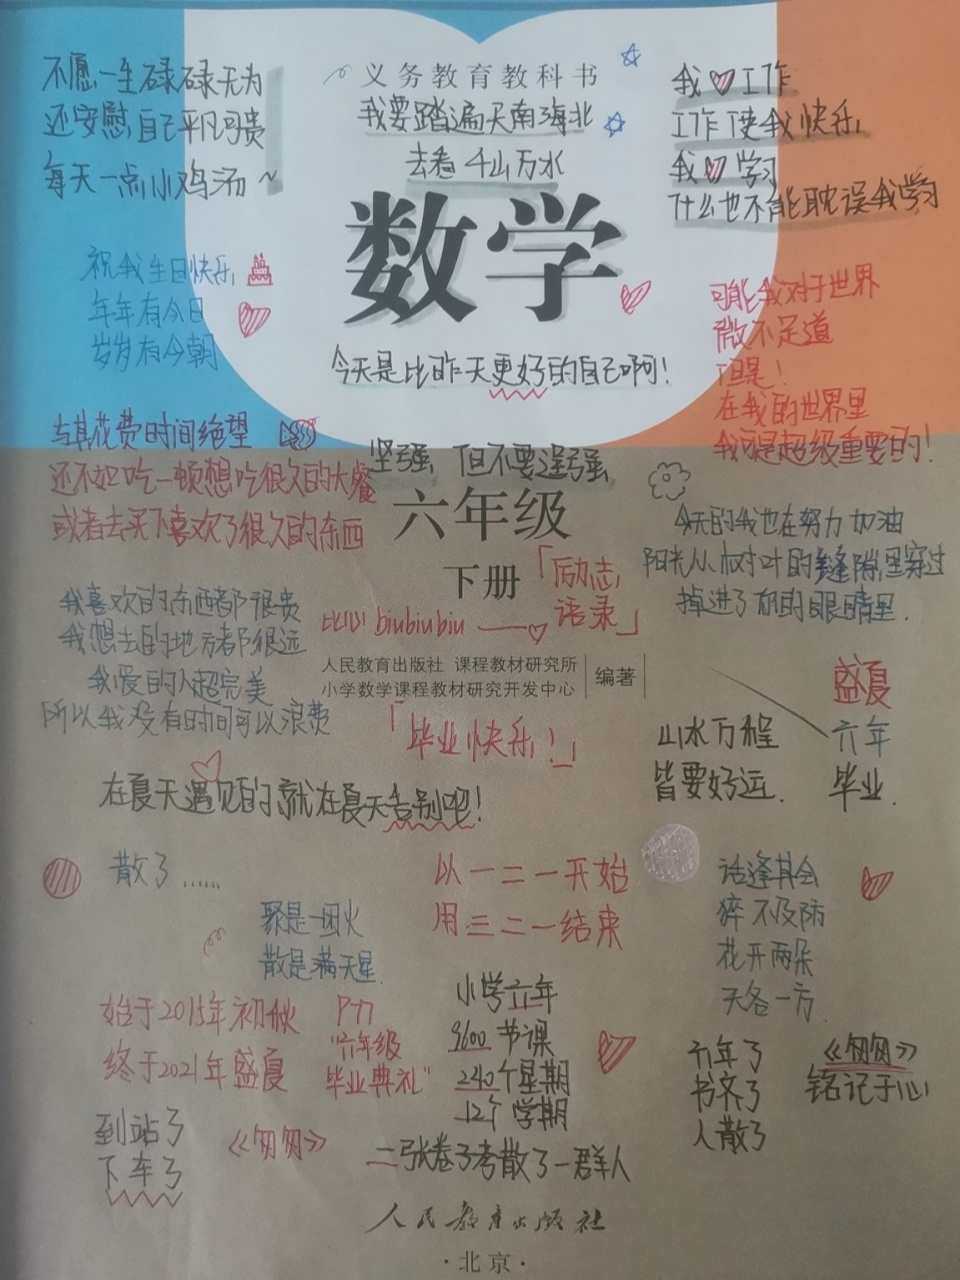 不愿一生碌碌无为
还安慰自己平凡可贵
每天一点小鸡汤~
义务教育教科书
我要踏遍天南海北
去看千山万水
我工作
工作使我快乐
我学习
什么也不能耽误我学习
数学
祝我生日快乐
年年有今日
岁岁有今朝
可能我对于世界
微不足道
但是!
在我的世界里
我可是超级重要的!
今天是比昨天更好的自己啊!
与其花费时间绝望
还不如吃一顿想吃很久的大餐
或者去买下喜欢了很久的东西
坚强,但不要逞强
六年级
下册
今天的我也在努力加油
阳光从树叶的缝隙里穿过
掉进了你的眼睛里.
「励志
语录」
biubiubiu
我喜欢的东西都很贵
我想去的地方都很远
我爱的人超完美
所以我没有时间可以浪费
人民教育出版社 课程教材研究所
小学数学课程教材研究开发中心
编著
「毕业快乐!」
盛夏
六年
毕业.
山水万程
皆要好运.
在夏天遇见的就在夏天告别吧!
散了……
聚是一团火
散是满天星.
以一二一开始
用三二一结束
话逢其会
猝不及防
花开两朵
天各一方.
始于2015年初秋
终于2021年盛夏
P77
"六年级
毕业典礼"
小学六年
9600节课
240个星期
12个学期
二张卷子考散了一群人
六年了
书齐了
人散了
《匆匆》
铭记于心
到站了
下车了
《匆匆》
人民教育出版社
·北京·